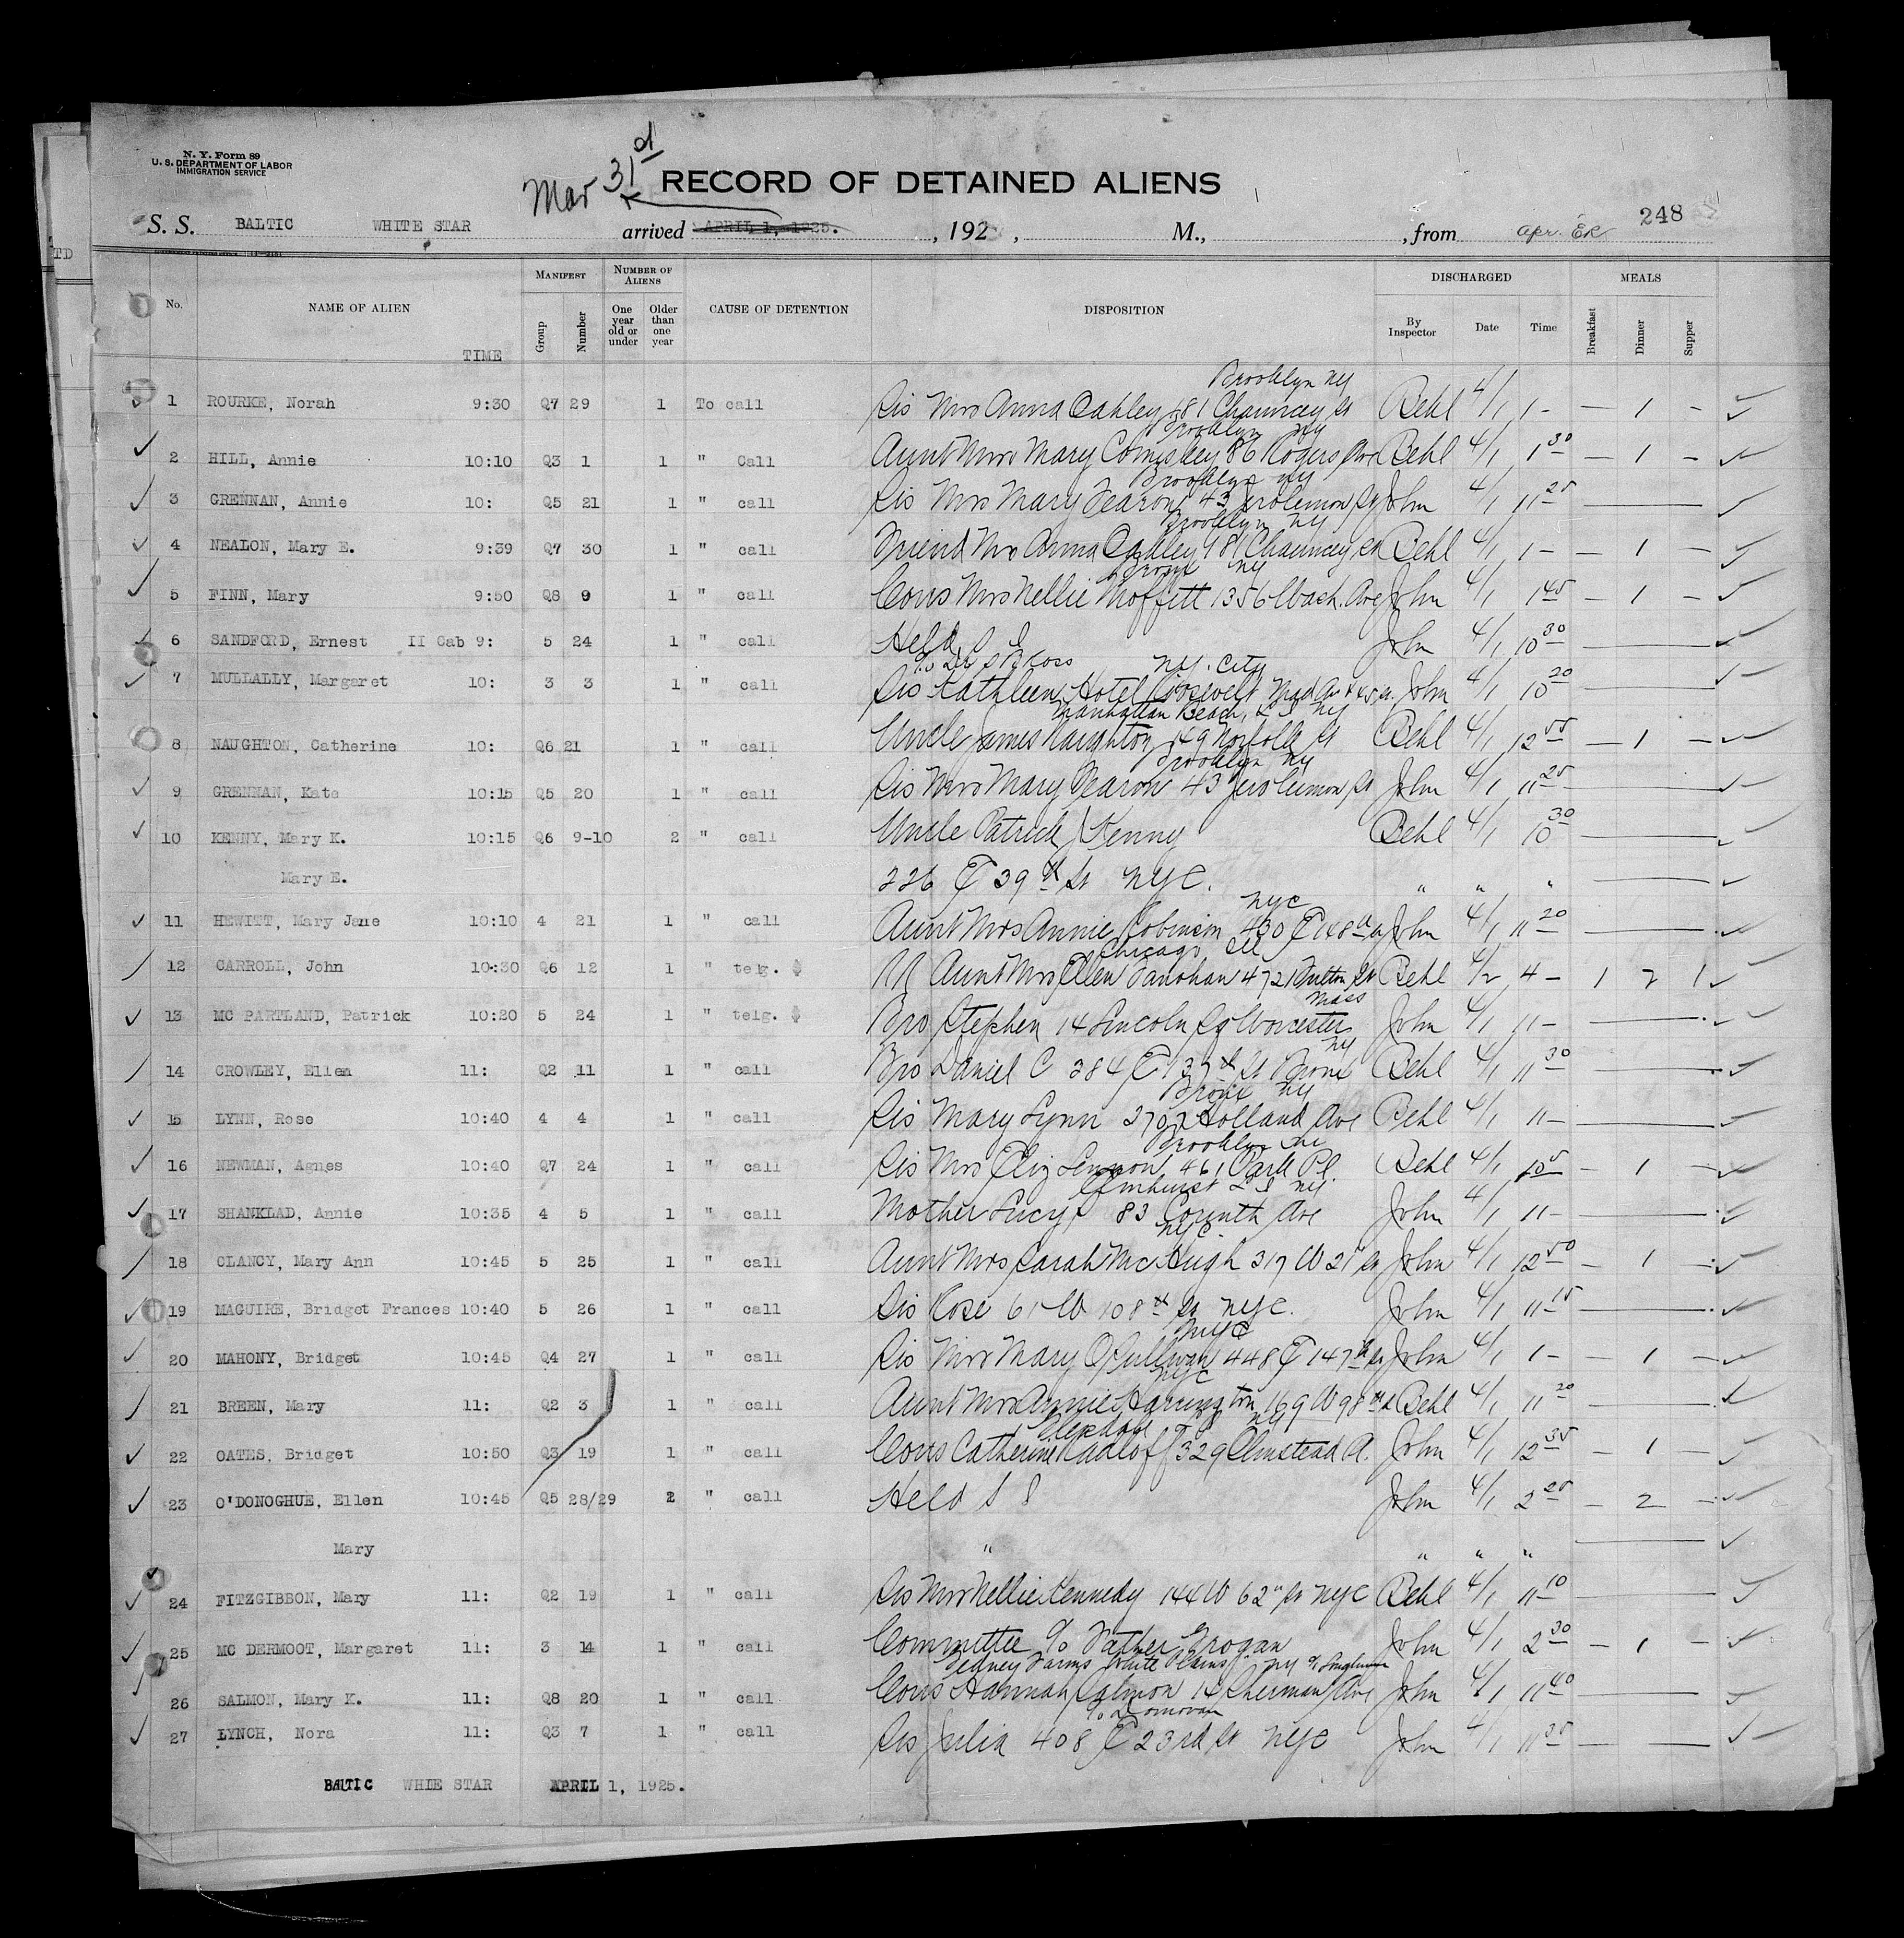 N. Y. Form 89
U. S. DEPARTMENT OF LABOR
IMMIGRATION SERVICE
Mar 31d
RECORD OF DETAINED ALIENS
248
S. S. BALTIC WHITE STAR arrived APRIL 1, 1925. , 192 , M., , from apr. ER
TD
No. NAME OF ALIEN TIME MANIFEST Group Number NUMBER OF ALIENS One year old or under Older than one year CAUSE OF DETENTION DISPOSITION DISCHARGED By Inspector Date Time MEALS Breakfast Dinner Supper
Brooklyn NY
1 ROURKE, Norah 9:30 Q7 29 1 To call Sis Mrs Anna Oakley 181 Chauncey St Behl 4/1 1 - — 1 -
Brooklyn NY
2 HILL, Annie 10:10 Q3 1 1 " Call Aunt Mrs Mary Comiskey 86 Rogers Ave Behl 4/1 1 30 — 1 -
Brooklyn NY
3 GRENNAN, Annie 10: Q5 21 1 " call Sis Mrs Mary Fearon 43 Jerolemon St John 4/1 11 25
Brooklyn NY
4 NEALON, Mary E. 9:39 Q7 30 1 " call Friend Mrs Anna Oakley 181 Chauncey St Behl 4/1 1 - — 1 -
Bronx NY
5 FINN, Mary 9:50 Q8 9 1 " call Cous Mrs Nellie Moffett 1356 Wash. Ave John 4/1 1 45 — 1 -
6 SANDFORD, Ernest II Cab 9: 5 24 1 " call Held S I John 4/1 10 30
NY. City
7 MULLALLY, Margaret 10: 3 3 1 " call Sis Kathleen Hotel Roosevelt Mad Av & 45 St. John 4/1 10 20
Manhattan Beach, L I NY
8 NAUGHTON, Catherine 10: Q6 21 1 " call Uncle James Naughton 149 Norfolk St Behl 4/1 12 55 — 1 -
Brooklyn NY
9 GRENNAN, Kate 10:15 Q5 20 1 " call Sis Mrs Mary Fearon 43 Jerolemon St John 4/1 11 25
10 KENNY, Mary K. 10:15 Q6 9-10 2 " call Uncle Patrick Kenny Behl 4/1 10 30
Mary E. 226 E 39th St NYC. " " "
NYC
11 HEWITT, Mary Jane 10:10 4 21 1 " call Aunt Mrs Annie Robinson 430 E 148th St John 4/1 11 20
Chicago Ill
12 CARROLL, John 10:30 Q6 12 1 " telg. RR Aunt Mrs Ellen 4721 Fulton St Behl 4/2 4 - 1 2 1
Mass
13 MC PARTLAND, Patrick 10:20 5 24 1 " telg. Bro Stephen 14 Lincoln Sq Worcester John 4/1 11 -
NY
14 CROWLEY, Ellen 11: Q2 11 1 " call Bro Daniel C 384 E 137th St Bronx Behl 4/1 11 30
Bronx NY
15 LYNN, Rose 10:40 4 4 1 " call Sis Mary Lynn 2707 Holland Ave Behl 4/1 11 -
Brooklyn NY
16 NEWMAN, Agnes 10:40 Q7 24 1 " call Sis Mrs Eliz Lennon 461 Park Pl. Behl 4/1 1 05 - 1 -
Elmhurst L I NY
17 SHANKLAD, Annie 10:35 4 5 1 " call Mother Lucy 83 Corinth Ave John 4/1 11 -
NYC.
18 CLANCY, Mary Ann 10:45 5 25 1 " call Aunt Mrs Sarah McHugh 317 W 21 St John 4/1 12 50 - 1 -
19 MAGUIRE, Bridget Frances 10:40 5 26 1 " call Sis Rose 61 W 108th St NYC. John 4/1 11 15
NYC
20 MAHONY, Bridget 10:45 Q4 27 1 " call Sis Mrs Mary O'Sullivan 448 E 147th St John 4/1 1 - - 1 -
NYC
21 BREEN, Mary 11: Q2 3 1 " call Aunt Mrs Annie Harrington 169 W 98th St Behl 4/1 11 20
NY
22 OATES, Bridget 10:50 Q3 19 1 " call Cous Catherine Radloff 329 Olmstead A. John 4/1 12 35 - 1 -
23 O'DONOGHUE, Ellen 10:45 Q5 28/29 2 " call Held S I John 4/1 2 20 - 2 -
Mary " " " "
24 FITZGIBBON, Mary 11: Q2 19 1 " call Sis Mrs Nellie Kennedy 144 W 62nd St NYC Behl 4/1 11 10
25 MC DERMOOT, Margaret 11: 3 14 1 " call Committee c/o Father Grogan John 4/1 2 30 - 1 -
Gedney Farms White Plains NY
26 SALMON, Mary K. 11: Q8 20 1 " call Cous Hannah Salmon 14 Sherman Ave John 4/1 11 40
c/o Donovan
27 LYNCH, Nora 11: Q3 7 1 " call Sis Julia 408 E 23rd St NYC John 4/1 11 35
BALTIC WHIE STAR APRIL 1, 1925.